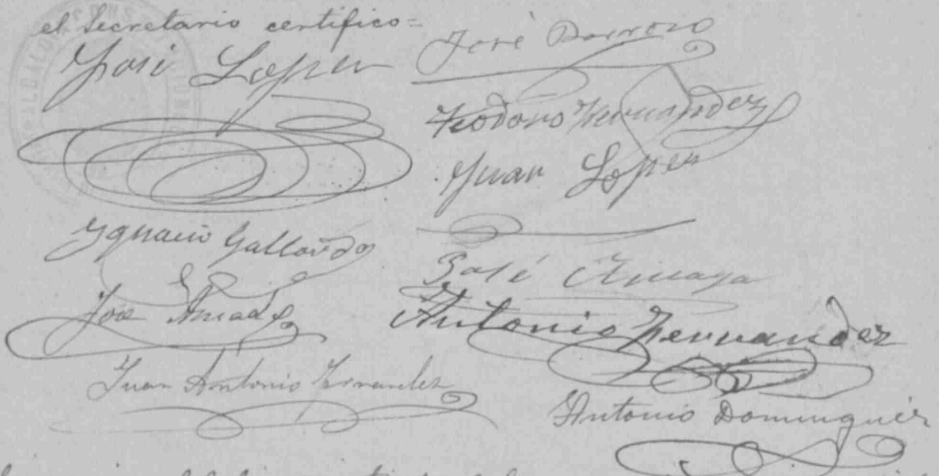 el Secretario certifico=
José Lopez
José Borrero
Teodoro Hernandez
Juan Lopez
Ygnacio Gallardo
José Amaya
José Amad
Antonio Hernandez
Juan Antonio Fernandez
Antonio Dominguez